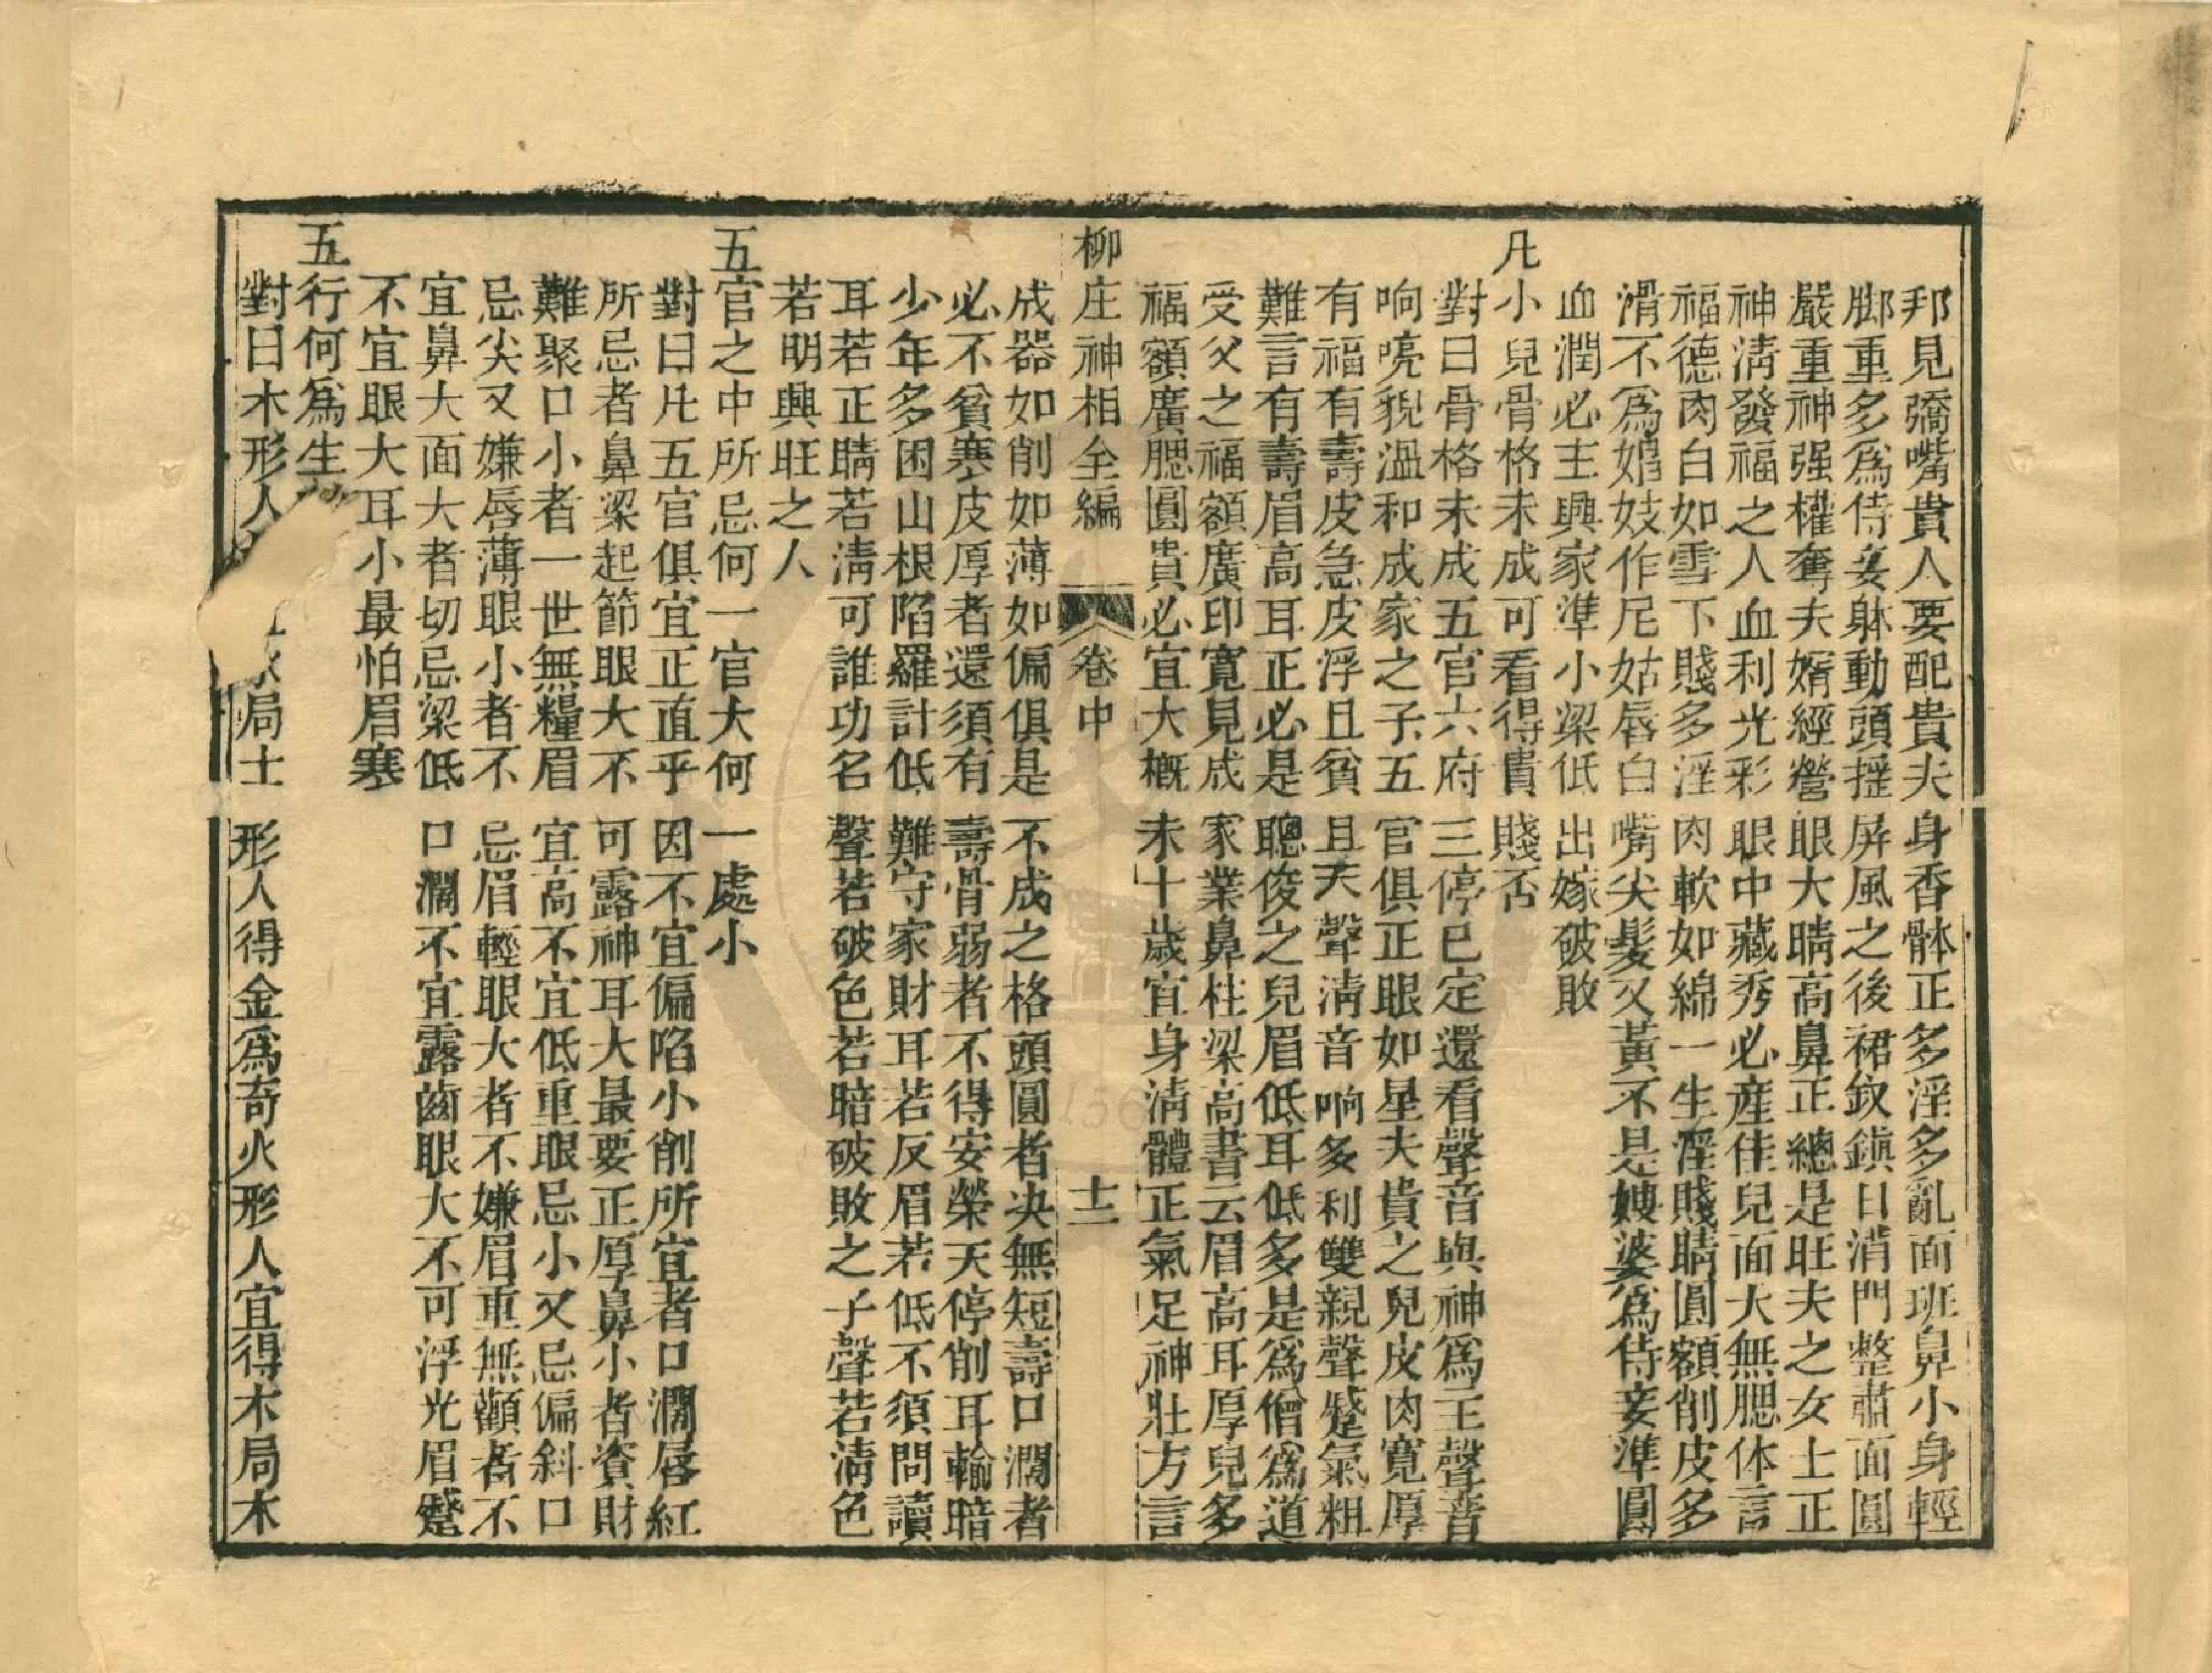 邦見喬嘴貴人要配貴夫身香骵正多淫多亂面班鼻小身輕
脚重多爲侍妾躰動頭揺屏風之後裙釵鎮日消門整肅面圓
嚴重神强權奪夫婿經營眼大睛高鼻正總是旺夫之女士正
神清發福之人血利光彩眼中藏秀必産佳兒面大無腮体言
福德肉白如雪下賤多淫肉軟如綿一生淫賤睛圓額削皮多
滑不爲娼妓作尼姑唇白嘴尖髪又黃不是媒婆爲侍妾準圓
血潤必主興家準小梁低出嫁破敗
凡小兒骨格未成可看得貴賤否
對曰骨格未成五官六府三停已定還看聲音與神爲主聲音
响喨貌溫和成家之子五官俱正眼如星夫貴之兒皮肉寬厚
有福有壽皮急皮浮且貧且夭聲清音响多利雙親聲蹙氣粗
難言有壽眉高耳正必是聰俊之兒眉低耳低多是爲僧爲道
受父之福額廣印寬見成家業鼻柱梁高書云眉高耳厚兒多
福額廣腮圓貴必宜大概未十歲宜身清體正氣足神壯方言
柳庄神相全編 卷中 十二
成器如削如薄如偏俱是不成之格頭圓者决無短壽口濶者
必不貧寒皮厚者還須有壽骨弱者不得安榮天停削耳輪暗
少年多困山根陷羅計低難守家財耳若反眉若低不須問讀
耳若正睛若清可誰功名聲若破色若暗破敗之子聲若清色
若明興旺之人
五官之中所忌何一官大何一處小
對曰凡五官俱宜正直乎因不宜偏陷小削所宜者口濶唇紅
所忌者鼻梁起節眼大不可露神耳大最要正厚鼻小者資財
難聚口小者一世無糧眉宜高不宜低重眼忌小又忌偏斜口
忌尖又嫌唇薄眼小者不忌眉輕眼大者不嫌眉重無顴者不
宜鼻大面大者切忌梁低口濶不宜露齒眼大不可浮光眉蹙
不宜眼大耳小最怕眉寒
五行何爲生
對曰木形人局士形人得金爲奇火形人宜得木局木